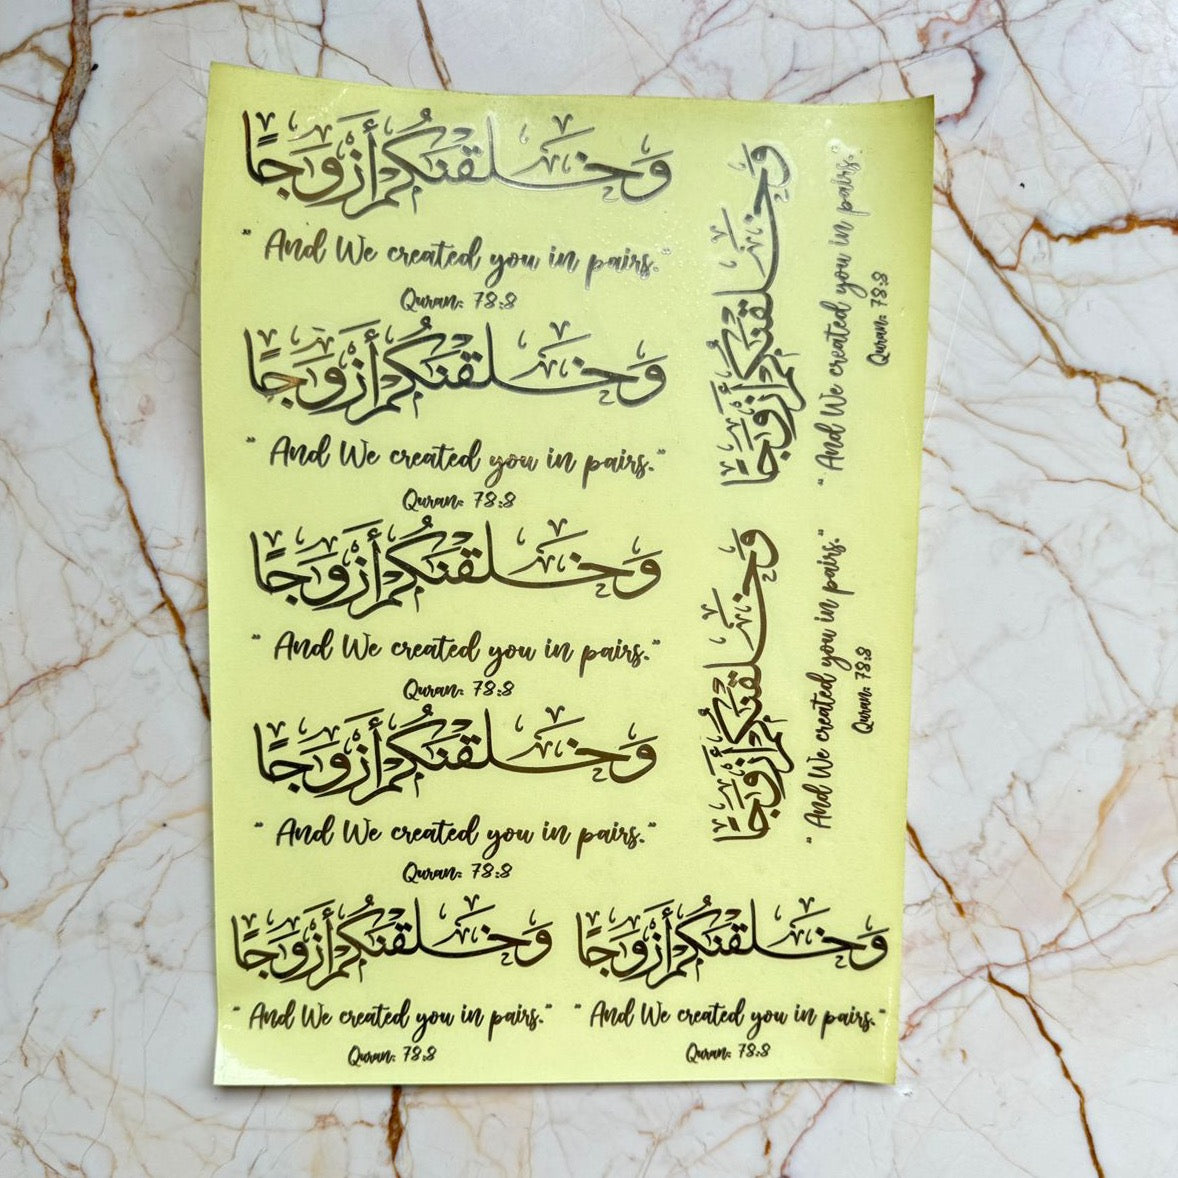 وَخَلَقْنَٰكُمْ أَزْوَٰجًا
" And We created you in pairs. "
Quran: 78:8
وَخَلَقْنَٰكُمْ أَزْوَٰجًا
" And We created you in pairs. "
Quran: 78:8
وَخَلَقْنَٰكُمْ أَزْوَٰجًا
" And We created you in pairs. "
Quran: 78:8
وَخَلَقْنَٰكُمْ أَزْوَٰجًا
" And We created you in pairs. "
Quran: 78:8
وَخَلَقْنَٰكُمْ أَزْوَٰجًا
" And We created you in pairs. "
Quran: 78:8
وَخَلَقْنَٰكُمْ أَزْوَٰجًا
" And We created you in pairs. "
Quran: 78:8
وَخَلَقْنَٰكُمْ أَزْوَٰجًا
" And We created you in pairs. "
Quran: 78:8
وَخَلَقْنَٰكُمْ أَزْوَٰجًا
" And We created you in pairs. "
Quran: 78:8